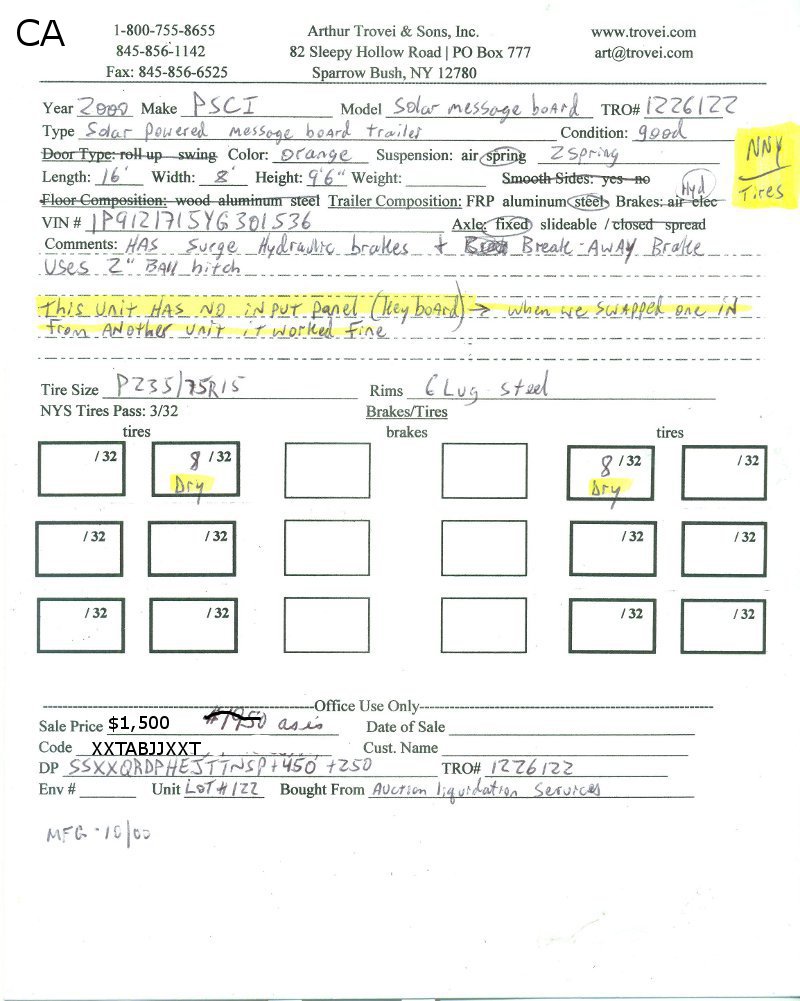 CA
1-800-755-8655 Arthur Trovei & Sons, Inc. www.trovei.com
845-856-1142 82 Sleepy Hollow Road | PO Box 777 art@trovei.com
Fax: 845-856-6525 Sparrow Bush, NY 12780
Year 2000 Make PSCI Model Solar message board TRO# 1226122
Type Solar Powered message board trailer Condition: good
Door Type: roll up swing Color: orange Suspension: air spring 2 spring
NNY
Tires
Length: 16' Width: 8' Height: 9'6" Weight: Smooth Sides: yes no
Hyd
Floor Composition: wood aluminum steel Trailer Composition: FRP aluminum steel Brakes: air elec
VIN # 1P9121715YG301536 Axle: fixed slideable / closed spread
Comments: HAS Surge Hydraulic brakes + Break-AwAy Brake
Uses 2" BAll hitch
This Unit HAS NO iNPUT panel (keyboard) → when we SWAPPED one iN
from ANother unit it worked fine
Tire Size P235/75R15 Rims 6 Lug steel
NYS Tires Pass: 3/32 Brakes/Tires
tires brakes tires
/ 32 8 / 32 8 / 32 / 32
Dry Dry
/ 32 / 32 / 32 / 32
/ 32 / 32 / 32 / 32
Office Use Only
Sale Price $1,500 $1950 as is Date of Sale
Code XXTABJJXXT Cust. Name
DP SSXXQRDPHEJTTNSP+450 +250 TRO# 1226122
Env # Unit LOT #122 Bought From Auction liquidation Services
MFG - 10/00